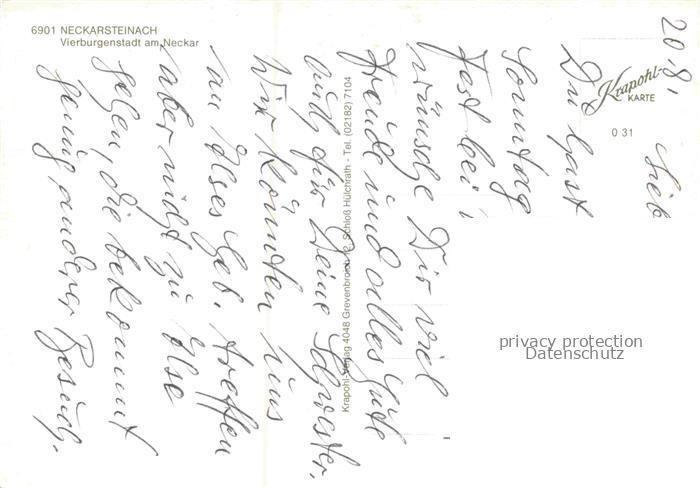 6901 NECKARSTEINACH
Vierburgenstadt am Neckar
Krapohl-
KARTE
0 31
Krapohl-Verlag 4048 Grevenbroich 12, Schloß Hülchrath - Tel. (02182) 7104
20.8.
Lieb
Du hast
Sonntag
Fest bei
wünsche Dir viel
Freude und alles Gute
auch für Deine Schwester.
Wir könnten uns
an Ilses Geb. treffen
aber nicht zu Ilse
gehen, die bekommt
genug anderer Besuch.
privacy protection
Datenschutz